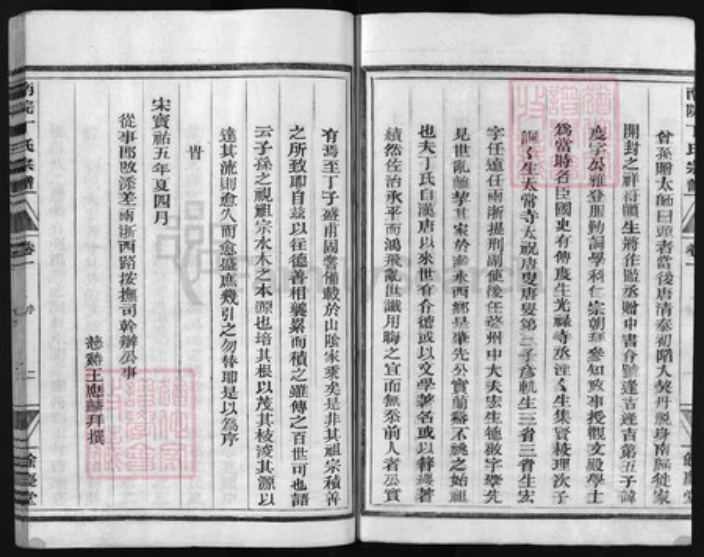 南院丁氏宗譜
卷一
餘慶堂
曾孫贈太師曰顗者當後唐清泰初陷入契丹脫身南歸徙家
開封之祥符顗生將作監丞贈中書令號逢吉逢吉第五子諱
度字公雅登服勤詞學科仁宗朝拜參知政事授觀文殿學士
為當時名臣國史有傳度生光祿寺丞 生集賢校理次子
諷諷生太常寺太祝唐叟唐叟第二子彥軌生三省三省生宏
字任遠任兩浙提刑副使後任婺州中大夫宏生德啟字肇先
見世亂離挈其家於 水西鄉是肇先公實蘭谿不祧之始祖
也夫丁氏自漢唐以來世有令德或以文學著名或以 著
績然佐治承平而鴻飛亂世識用晦之宜而無忝前人者丞實
有焉至丁子盛甫固嘗備載於山陰家乘矣是非其祖宗積善
之所致耶自茲以往德善相襲累而積之雖傳之百世可也語
云子孫之視祖宗水木之本源也培其根以茂其枝浚其源以
達其流則愈久而愈盛庶幾引之勿替耶是以為序
旹
宋寶祐五年夏四月
從事郎改添差兩浙西路按撫司幹辦公事
慈谿王應麟拜撰
南院丁氏宗譜
卷一
序
二
餘慶堂